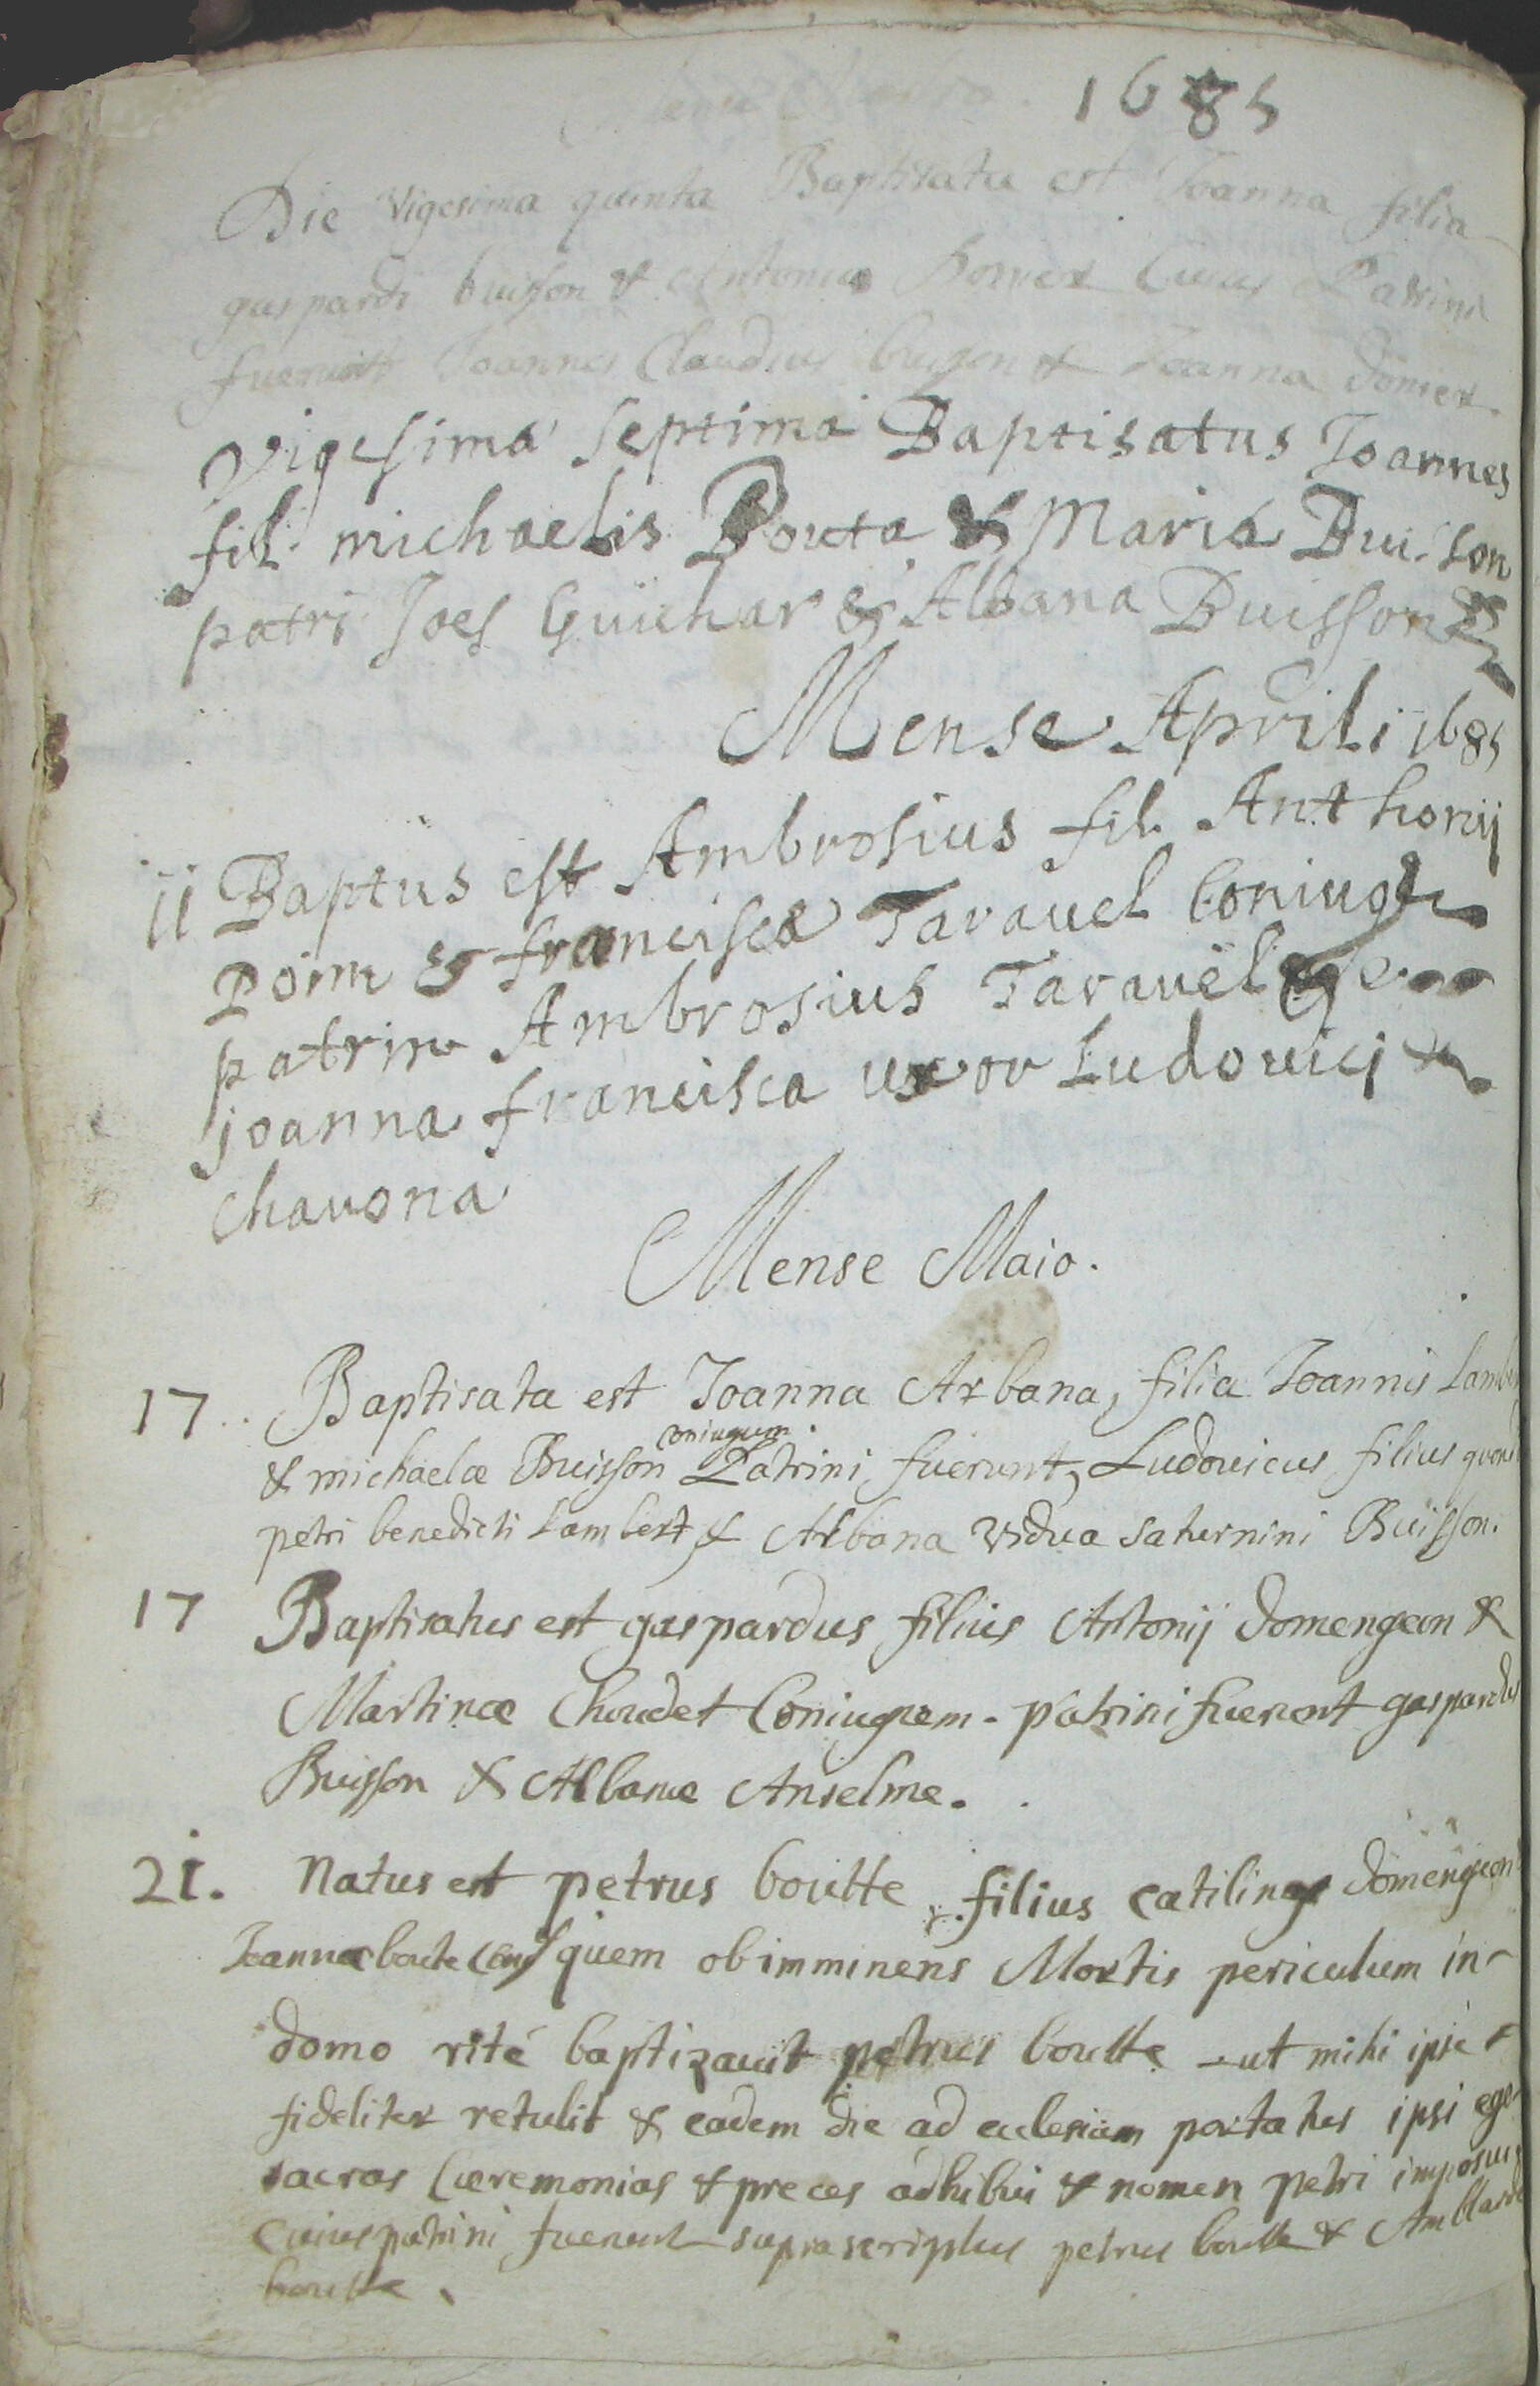 1685
Die vigesima quinta Baptisata est Joanna filia
gaspardi buisson & Antoniæ Cuius Patrini
fuerunt Joannes Claudius buisson & Joanna
Vigesima septima Baptisatus Joannes
fil. michaelis Bouta & Maria Buisson
patri Joes Guichar & Albana Buisson
Mense Aprili 1685
11 Baptus est Ambrosius fil. Anthonij
Poim & francisca Tarauel Coniug
patrin Ambrosius Tarauel &
joanna francisca uxor Ludouici
Chauona
Mense Maio.
17. Baptisata est Joanna Arbana, filia Joannis Lamber
coniugum
& michaelæ Buisson Patrini fuerunt, Ludouicus filius quond
petri benedicti Lambert & Albana vidua saturnini Buisson.
17 Baptisatus est gaspardus filius Antonij domengeon &
Martinæ Choudet Coniugem. patrini fuerunt gaspardus
Buisson & Albana Anselme.
21. Natus est petrus boutte filius catilinæ domengeon
Joanna boute quem ob imminens Mortis periculum in
domo rité baptizauit petrus boutte ut mihi ipse
fideliter retulit & eadem die ad eclesiam portatus ipsi ego
sacras Cæremonias & preces adhibui & nomen petri imposui
Cuius patrini fuerunt suprascriptus petrus boutte & Amblarde
boutte.